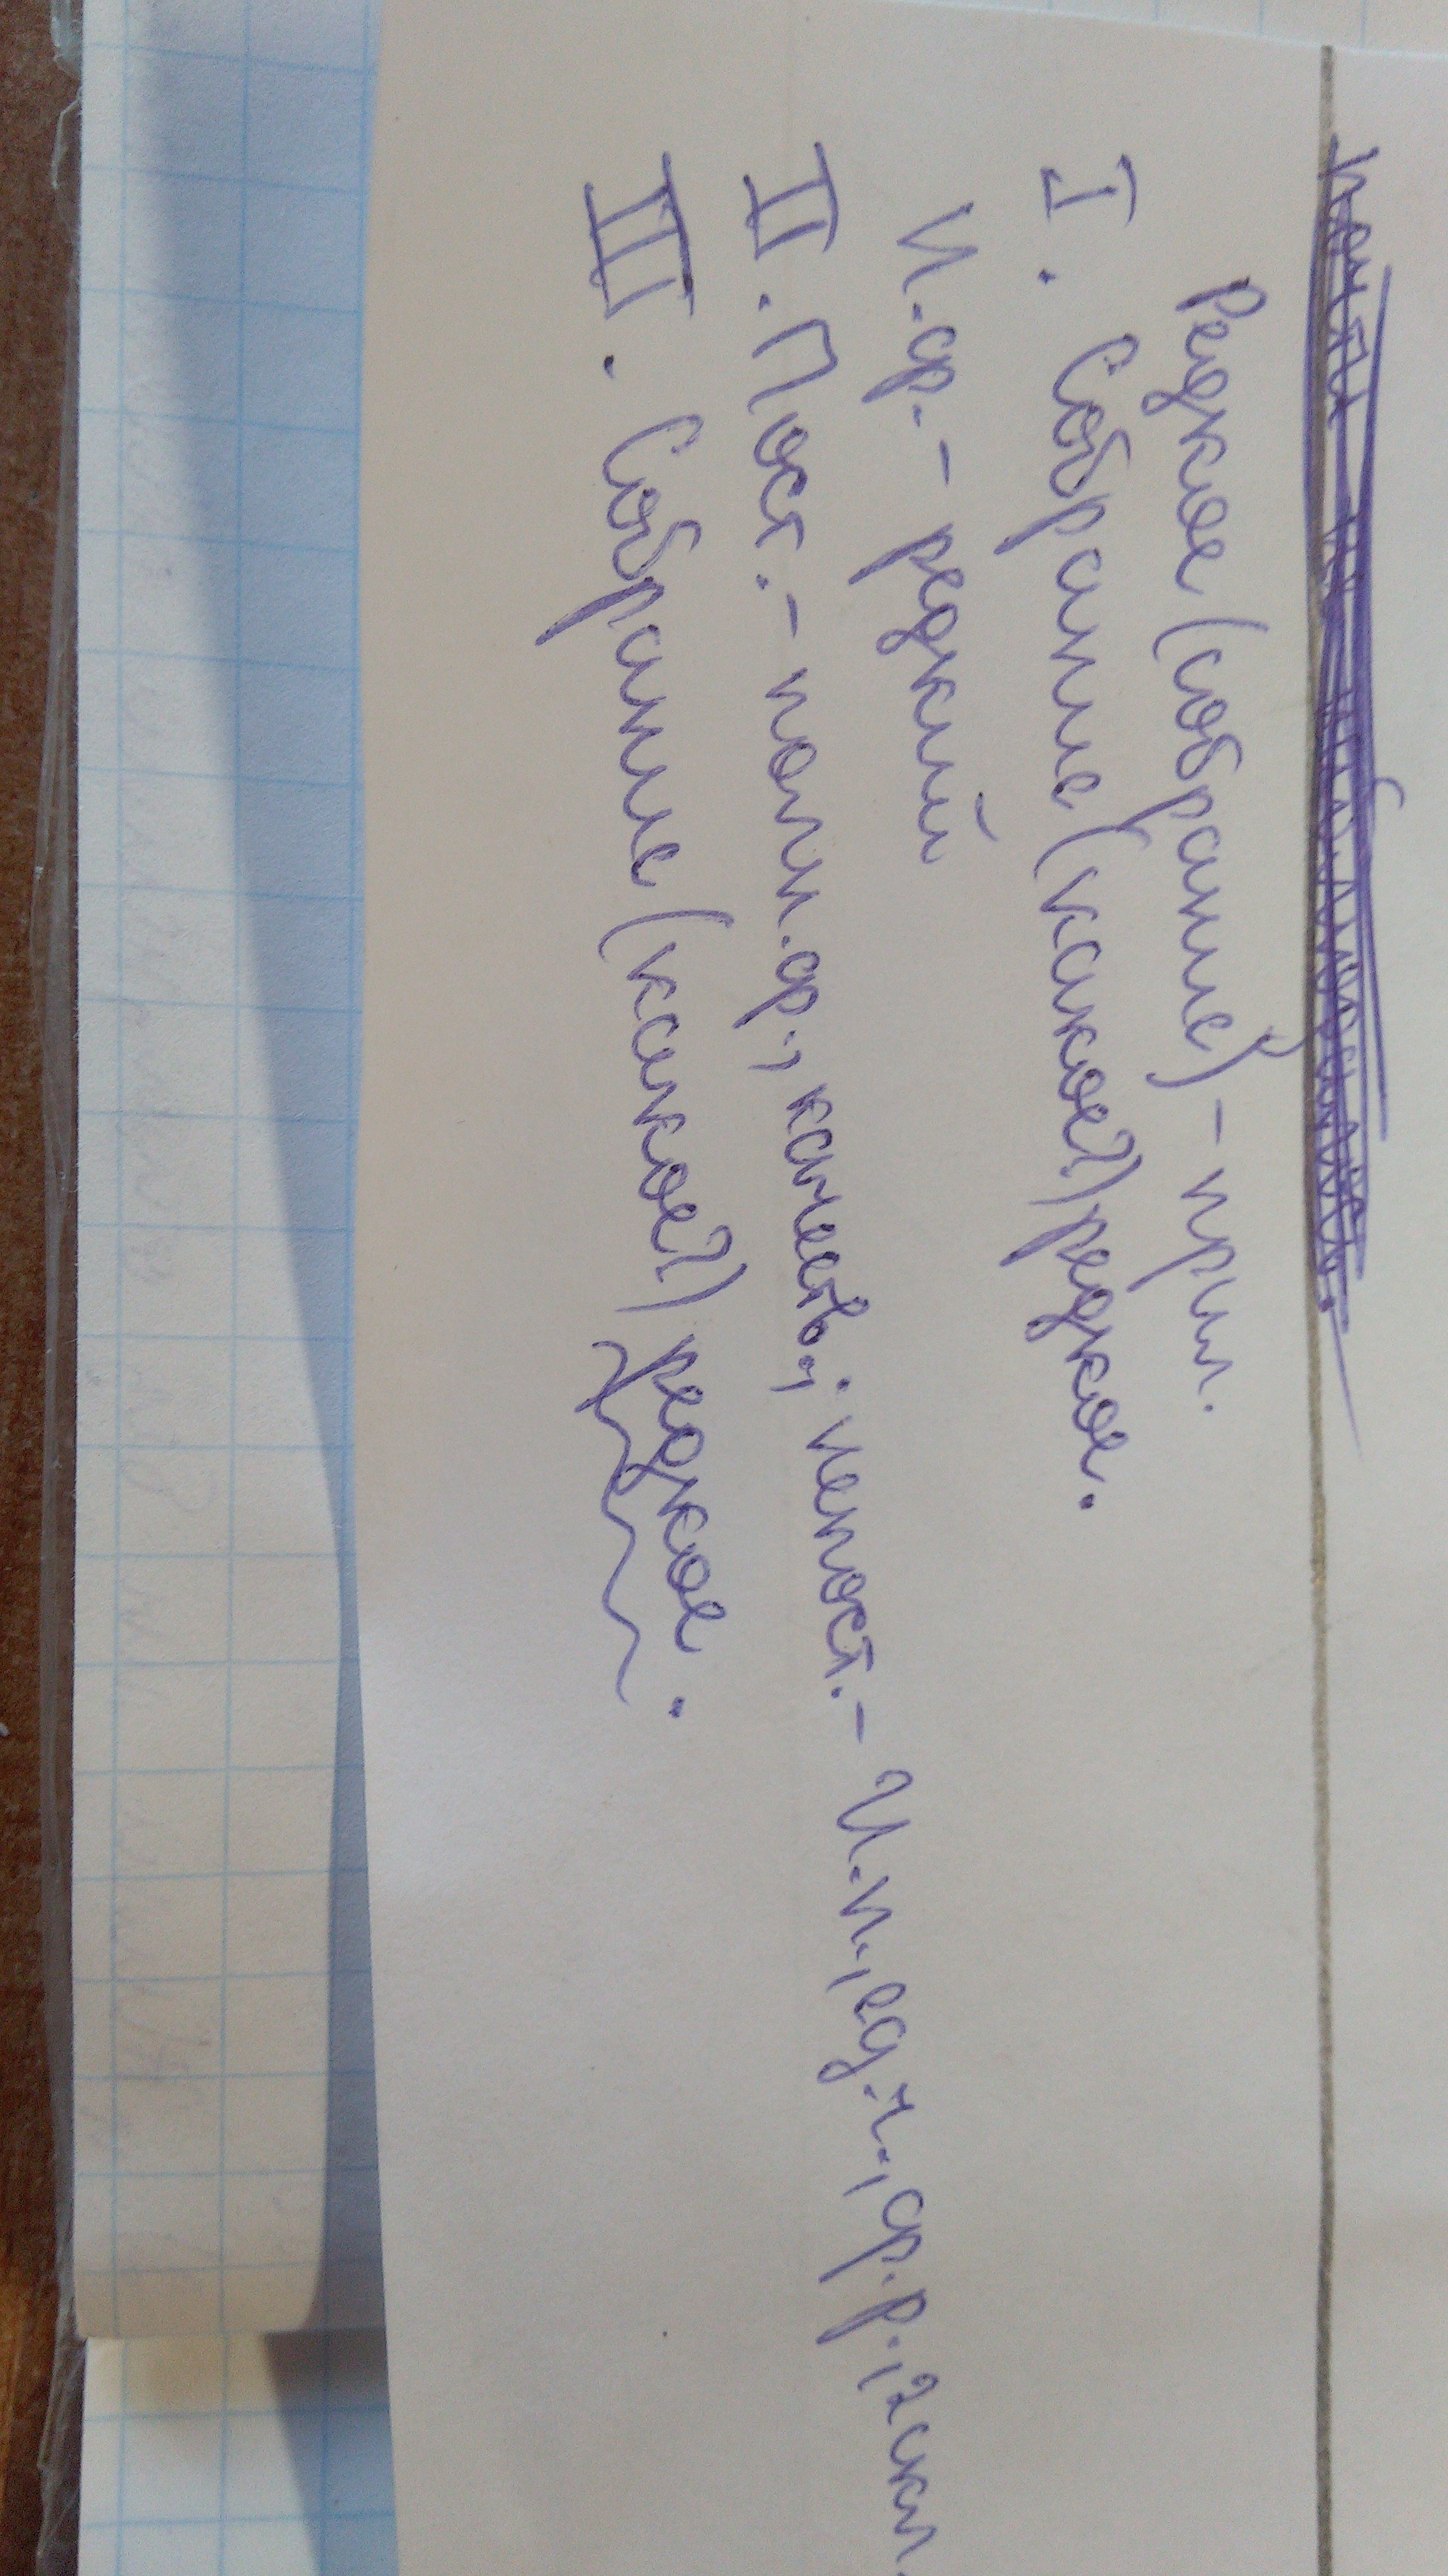 Редкое (собрание) - прил.
I. Собрание (какое?) редкое.
И.ф. - редкий
II. Пост. - полн.ф., качеств.; непост. - И.п., ед.ч., ср.р., 2 скл.
III. Собрание (какое?) редкое.